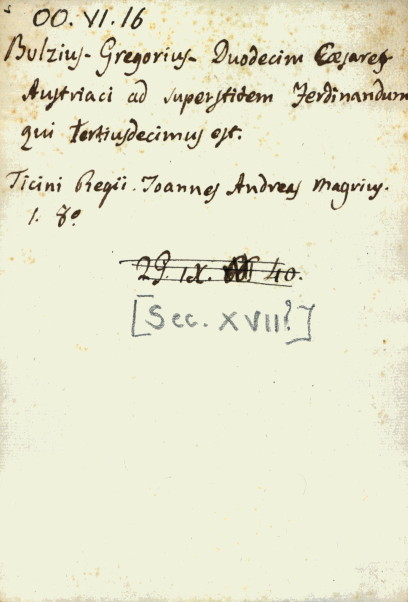 OO. VI. 16
Bulzius - Gregorius - Duodecim Cæsares
Austriaci ad superstitem Ferdinandum
qui tertiusdecimus est.
Ticini Regii. Joannes Andreas Magrius.
1. 8º
29. IX. 40.
[Sec. XVII?]